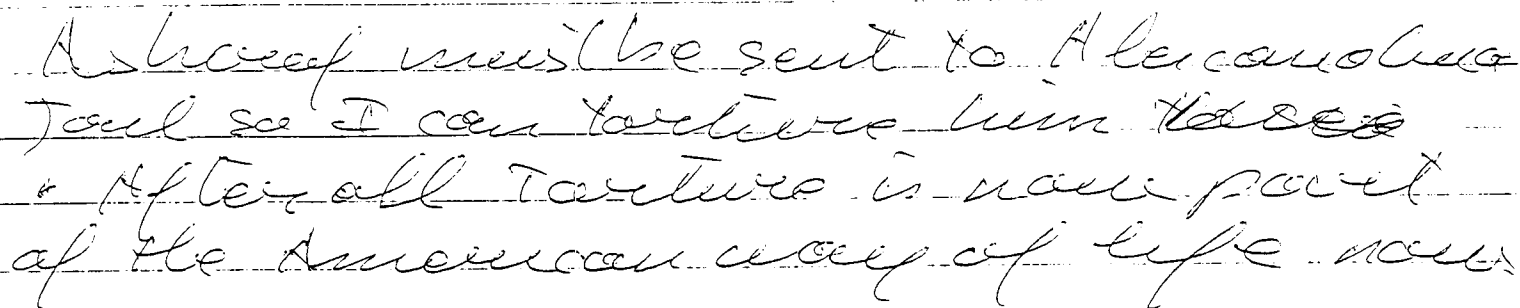 Ashraf must be sent to Alexandria
Jail so I can torture him
. After all Torture is now part
of the American way of life now